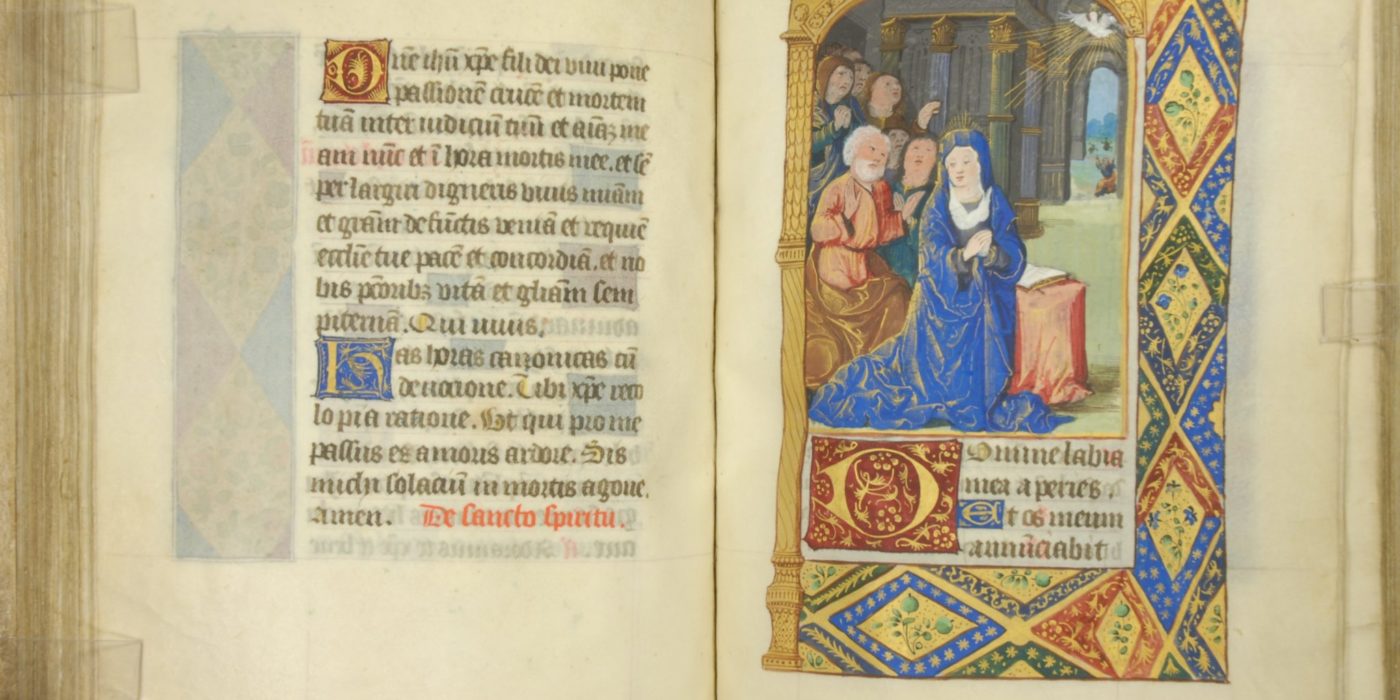 Dñe ihũ xp̃e fili dei viui pone
passionẽ crucẽ et mortem
tuã inter iudiciũ tuũ et aĩaʒ me
am nũc et ĩ hora mortis mee. et sẽ
per largiri digneris viuis m̃iam
et gr̃am defũctis veniã et requiẽ
eccl̃ie tue pacẽ et concordiã. et no
bis pc̃oribʒ vitã et gl̃iam sem
piternã. Qui viuis.
Has horas canonicas cũ
deuocione. Tibi xp̃e reco
lo pia ratione. Vt qui pro me
passus es amoris ardore. Sis
michi solaciũ in mortis agone.
amen. De sancto spiritu.
Domine labia
mea aperies.
Et os meum
annũciabit